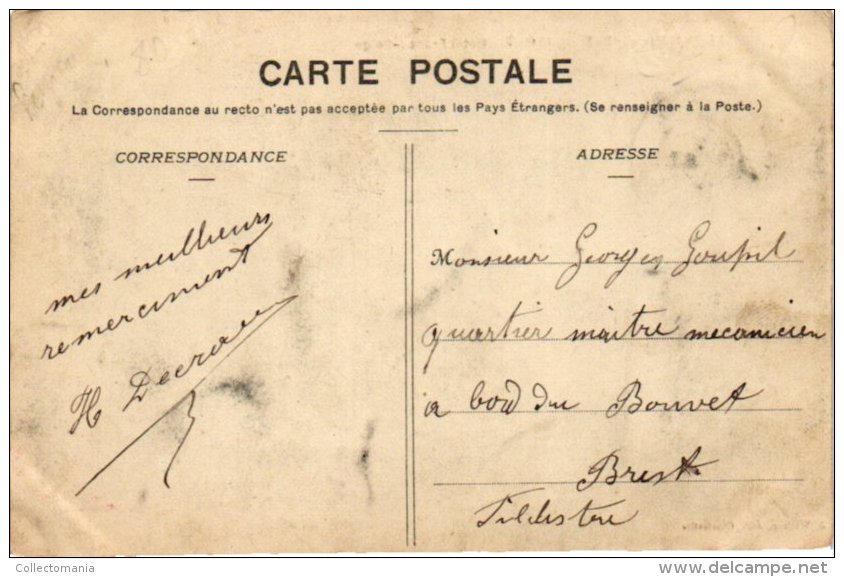 CARTE POSTALE
La Correspondance au recto n'est pas acceptée par tous les Pays Étrangers. (Se renseigner à la Poste.)
CORRESPONDANCE
mes meilleurs
remerciment
H
ADRESSE
Monsieur Georges Goupil
quartier maitre mecanicien
a bord du Bouvet
Brest
Collectomania
delcampe.net